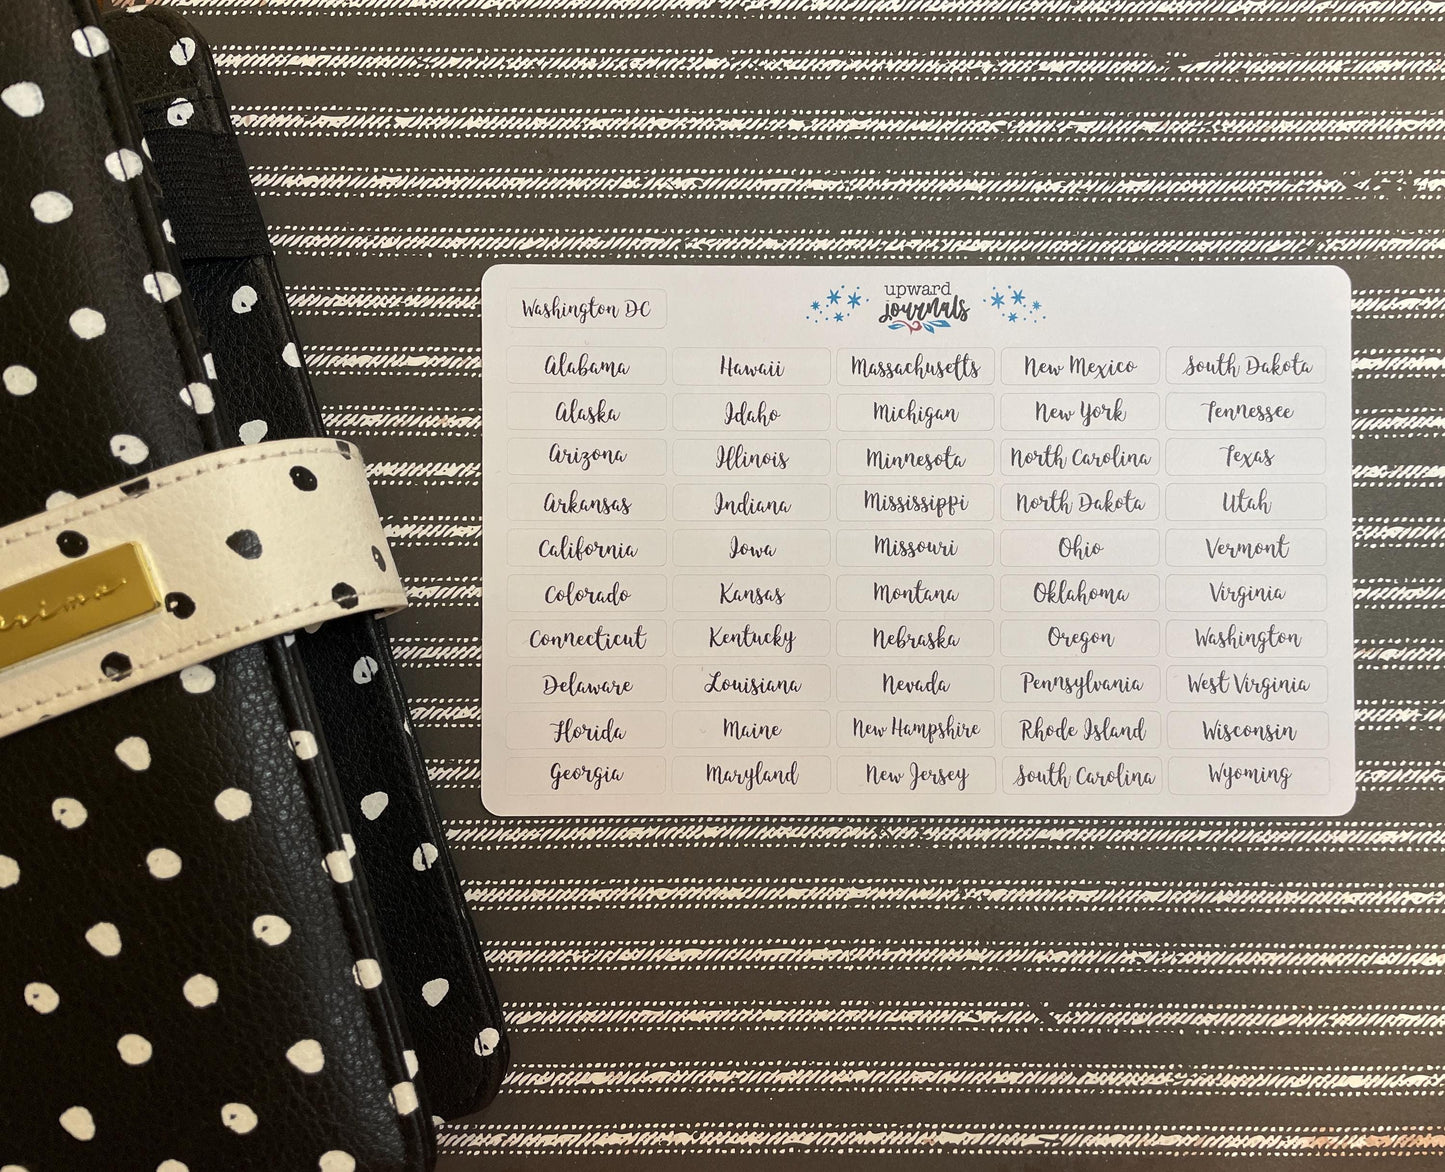 Washington DC
upward
journals
Alabama Hawaii Massachusetts New Mexico South Dakota
Alaska Idaho Michigan New York Tennessee
Arizona Illinois Minnesota North Carolina Texas
Arkansas Indiana Mississippi North Dakota Utah
California Iowa Missouri Ohio Vermont
Colorado Kansas Montana Oklahoma Virginia
Connecticut Kentucky Nebraska Oregon Washington
Delaware Louisiana Nevada Pennsylvania West Virginia
Florida Maine New Hampshire Rhode Island Wisconsin
Georgia Maryland New Jersey South Carolina Wyoming